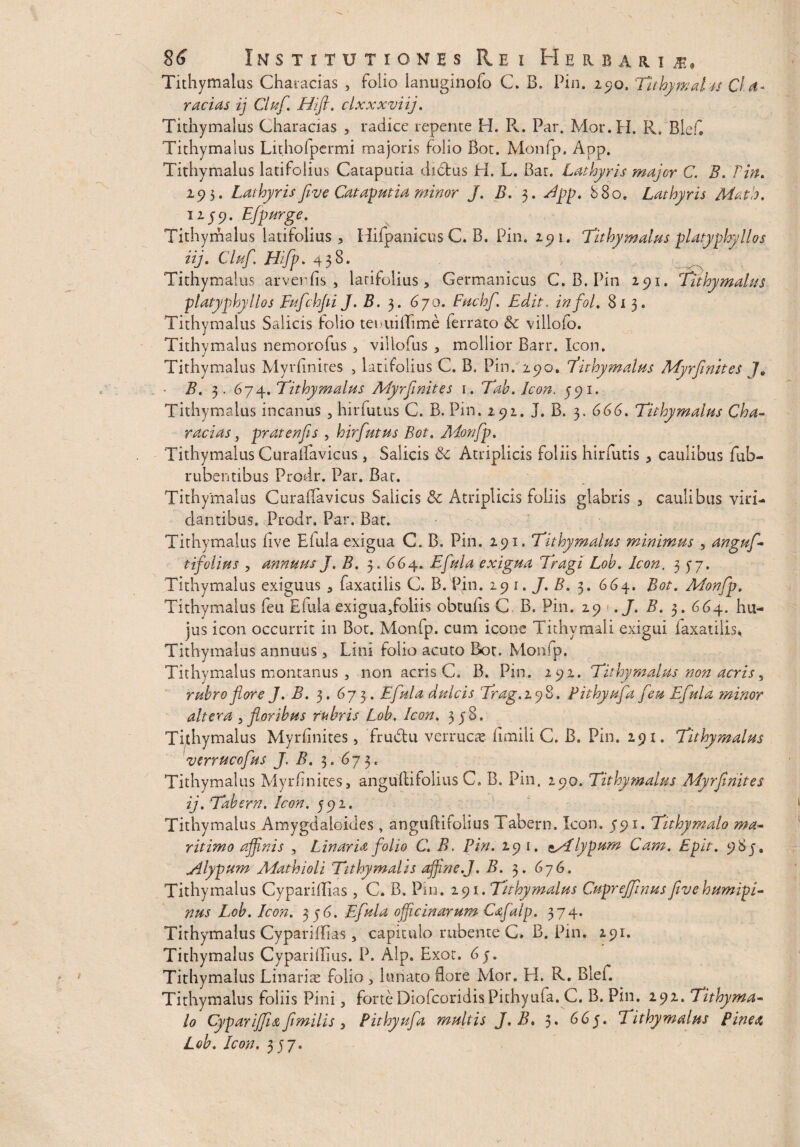 86 INSTITUTIONES REI HERBARIÆ,
Tithymalus Characias , folio lanuginoſo C. B. Pin. 290. Tithymalus Cha-
racias ij Cluſ. Hiſt. clxxxviij.
Tithymalus Characias , radice repente H. R. Par. Mor. H. R. Bleſ.
Tithymalus Lithoſpermi majoris folio Bot. Monſp. App.
Tithymalus latifolius Cataputia dictus H. L. Bat. Lathyris major C. B. Pin.
293. Lathyris ſive Cataputia minor J. B. 3. App. 880. Lathyris Math.
1259. Eſpurge.
Tithymalus latifolius , Hiſpanicus C. B. Pin. 291. Tithymalus platyphyllos
iij. Cluſ. Hiſp. 438.
Tithymalus arvenſis , latifolius , Germanicus C. B. Pin 291. Tithymalus
platyphyllos Fuſchſii J. B. 3. 670. Fuchſ. Edit. in fol. 813.
Tithymalus Salicis folio tenuiſſimè ſerrato & villoſo.
Tithymalus nemoroſus , villoſus , mollior Barr. Icon.
Tithymalus Myrſinites , latifolius C. B. Pin. 290. Tithymalus Myrſinites J.
B. 3. 674. Tithymalus Myrſinites 1. Tab. Icon. 591.
Tithymalus incanus , hirſutus C. B. Pin. 292. J. B. 3. 666. Tithymalus Cha-
racias , pratenſis , hirſutus Bot. Monſp.
Tithymalus Curaſſavicus , Salicis & Atriplicis foliis hirſutis , caulibus ſub-
rubentibus Prodr. Par. Bat.
Tithymalus Curaſſavicus Salicis & Atriplicis foliis glabris , caulibus viri-
dantibus. Prodr. Par. Bat.
Tithymalus ſive Eſula exigua C. B. Pin. 291. Tithymalus minimus , anguſ-
tifolius , annuus J. B. 3. 664. Eſula exigua Tragi Lob. Icon. 357.
Tithymalus exiguus , ſaxatilis C. B. Pin. 291. J. B. 3. 664. Bot. Monſp.
Tithymalus ſeu Eſula exigua,foliis obtuſis C. B. Pin. 291. J. B. 3. 664. hu-
jus icon occurrit in Bot. Monſp. cum icone Tithymali exigui ſaxatilis.
Tithymalus annuus , Lini folio acuto Bot. Monſp.
Tithymalus montanus , non acris C. B. Pin. 292. Tithymalus non acris,
rubro flore J. B. 3. 673. Eſula dulcis Trag. 298. Pithyuſa ſeu Eſula minor
altera , floribus rubris Lob. Icon. 358.
Tithymalus Myrſinites , fructu verrucæ ſimili C. B. Pin. 291. Tithymalus
verrucoſus J. B. 3. 673.
Tithymalus Myrſinites, anguſtifolius C. B. Pin. 290. Tithymalus Myrſinites
ij. Tabern. Icon. 592.
Tithymalus Amygdaloides , anguſtifolius Tabern. Icon. 591. Tithymalo ma-
ritimo affinis , Linariæ folio C. B. Pin. 291. Alypum Cam. Epit. 985.
Alypum Mathioli Tithymalis affine J. B. 3. 676.
Tithymalus Cypariſſias , C. B. Pin. 291. Tithymalus Cupreſſinus ſive humipi-
nus Lob. Icon. 356. Eſula officinarum Cæſalp. 374.
Tithymalus Cypariſſias , capitulo rubente C. B. Pin. 291.
Tithymalus Cypariſſius. P. Alp. Exot. 65.
Tithymalus Linariæ folio , lunato flore Mor. H. R. Bleſ.
Tithymalus foliis Pini , fortè Dioſcoridis Pithyuſa. C. B. Pin. 292. Tithyma-
lo Cypariſſiæ ſimilis , Pithyuſa multis J. B. 3. 665. Tithymalus Pinea
Lob. Icon. 357.